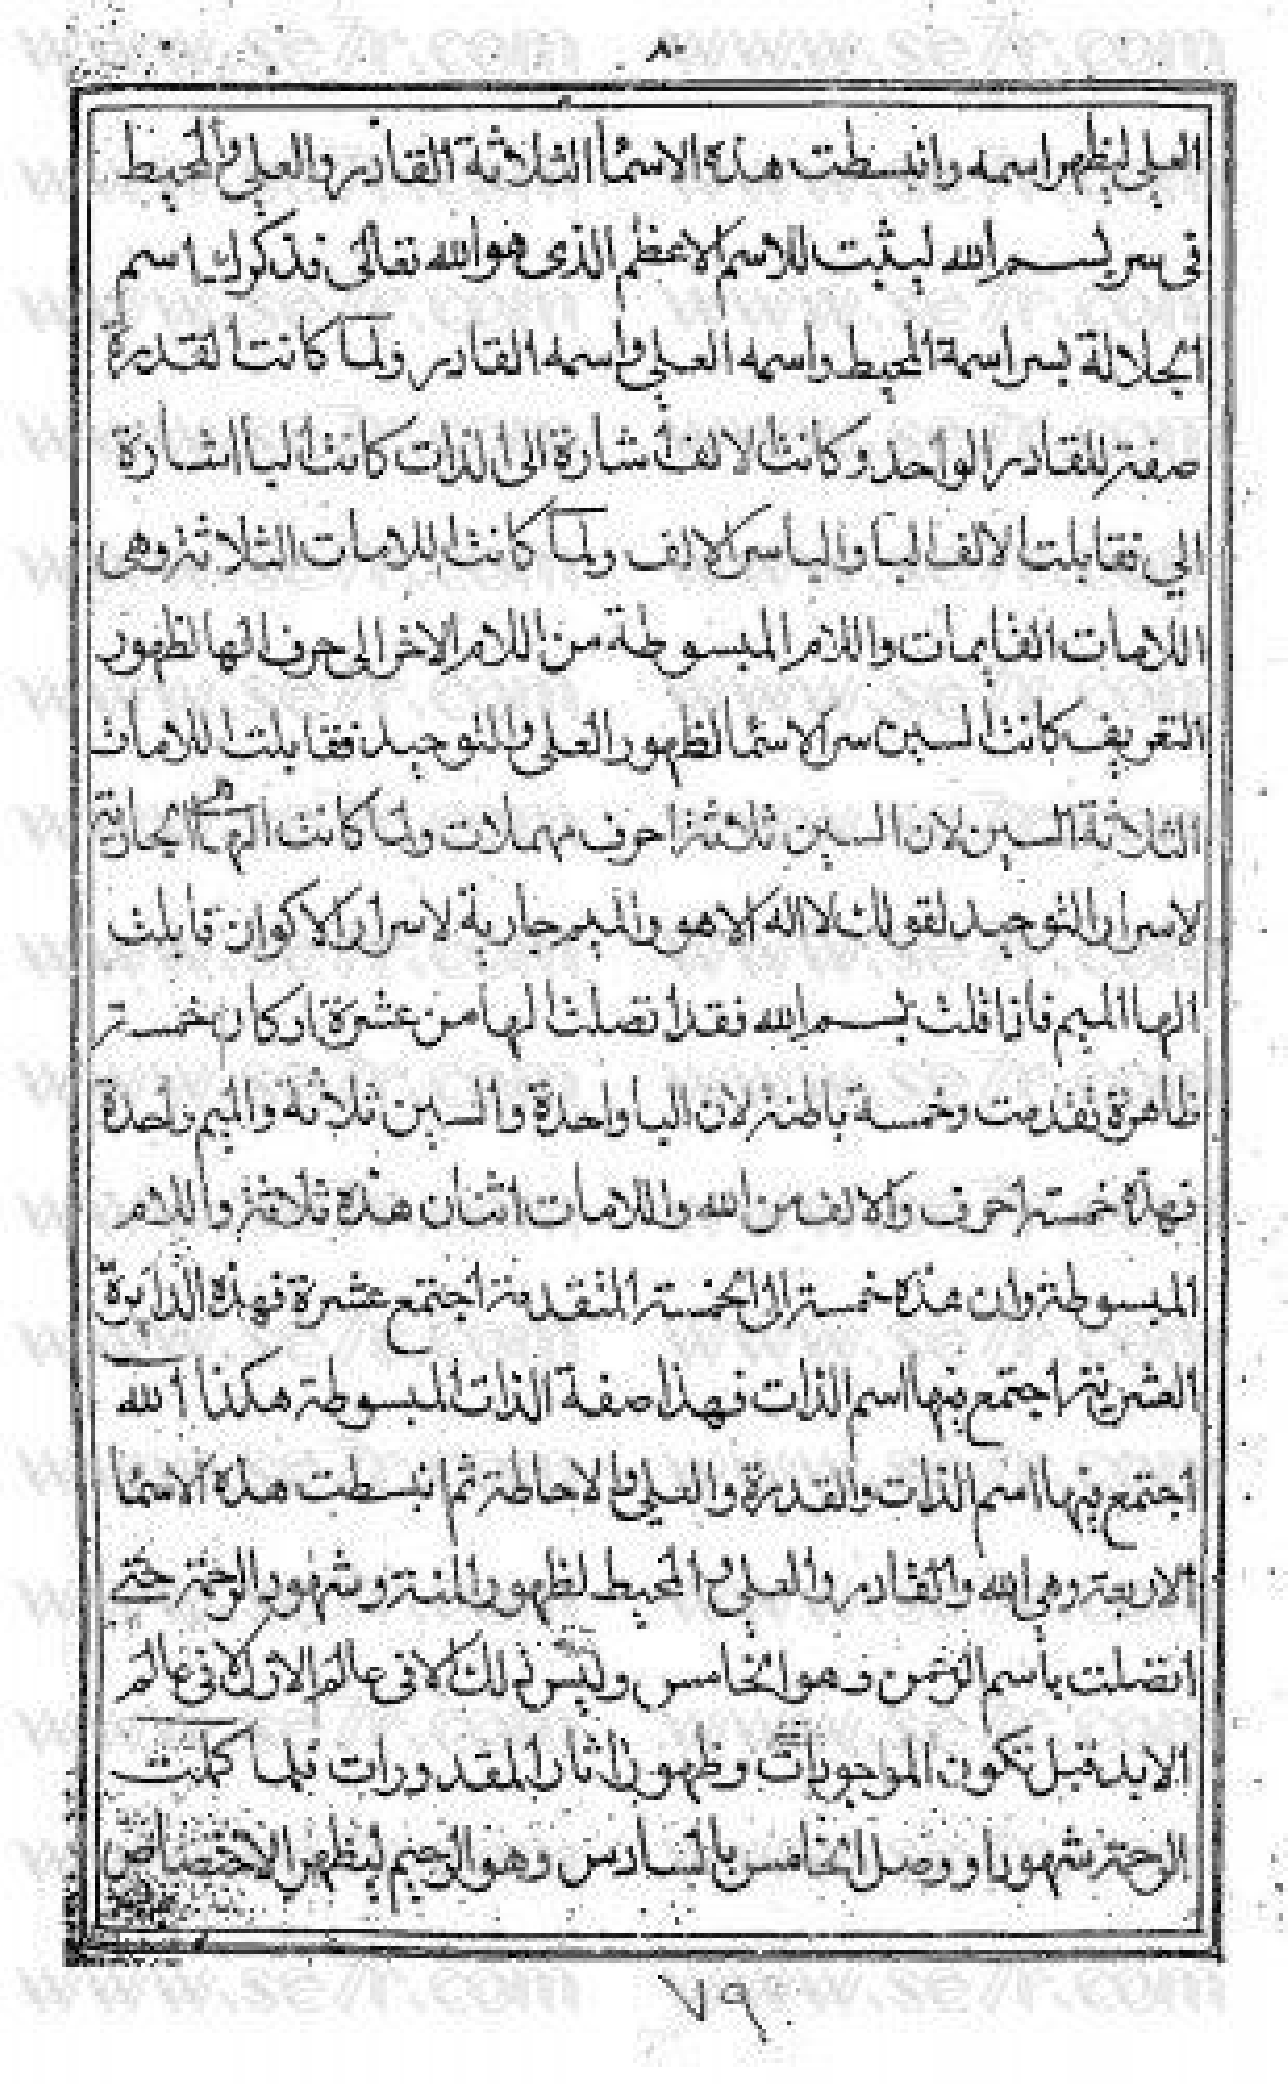 ٨٠
العلي ليظهر اسمه وانبسطت هذه الاسمأ الثلاثة القادر والعلي والمحيط
في سر بسم الله ليثبت للاسم الاعظم الذى هو الله تعالى فذكرك اسم
الجلالة بسر اسمه المحيط واسمه العلي واسمه القادر ولما كانت القدرة
صفته للقادر الواحد وكانت الالف اشارة الى الذات كانت البا اشارة
الي فقابلت الالف البا والبا سر الالف ولما كانت اللامات الثلاثة وهى
اللامات القايمات واللام المبسوطة من اللام الاخر الى حرف الها لظهور
التعريف كانت السين سر الاسمأ لظهور العلي والتوحيد فقابلت اللامات
الثلاثة السين لان السين ثلاثة احرف مهملات ولما كانت الها الجارية
لاسرار التوحيد لقولك لا اله الا هو والميم جارية لاسرار الاكوان قابلت
الها الميم فاذا قلت بسم الله فقد اتصلت لها من عشرة اركان خمسة
ظاهرة تقدمت وخمسة باطنة لان البا واحدة والسين ثلاثة والميم واحدة
فهذه خمسة احرف والالف من الله واللامات اثنان هذه ثلاثة واللام
المبسوطة وان هذه خمسة الى الخمسة المتقدمة اجتمع عشرة فهذه الدايرة
الشريفة اجتمع فيها اسم الذات فهذا صفة الذات المبسوطة هكذا الله
اجتمع فيها اسم الذات والقدرة والعلي والاحاطة ثم انبسطت هذه الاسمأ
الاربعة وهي الله والقادر والعلي والمحيط لظهور المنة وشهود الرحمة حتى
اتصلت باسم الرحمن وهو الخامس وليس ذلك الا في عالم الازل لا في عالم
الابد قبل تكون الموجودات وظهور اثار المقدورات فلما كملت
الرحمة شهودا ووصل الخامس بالسادس وهو الرحيم ليظهر الاختصاص
٧٩
www.se7r.com